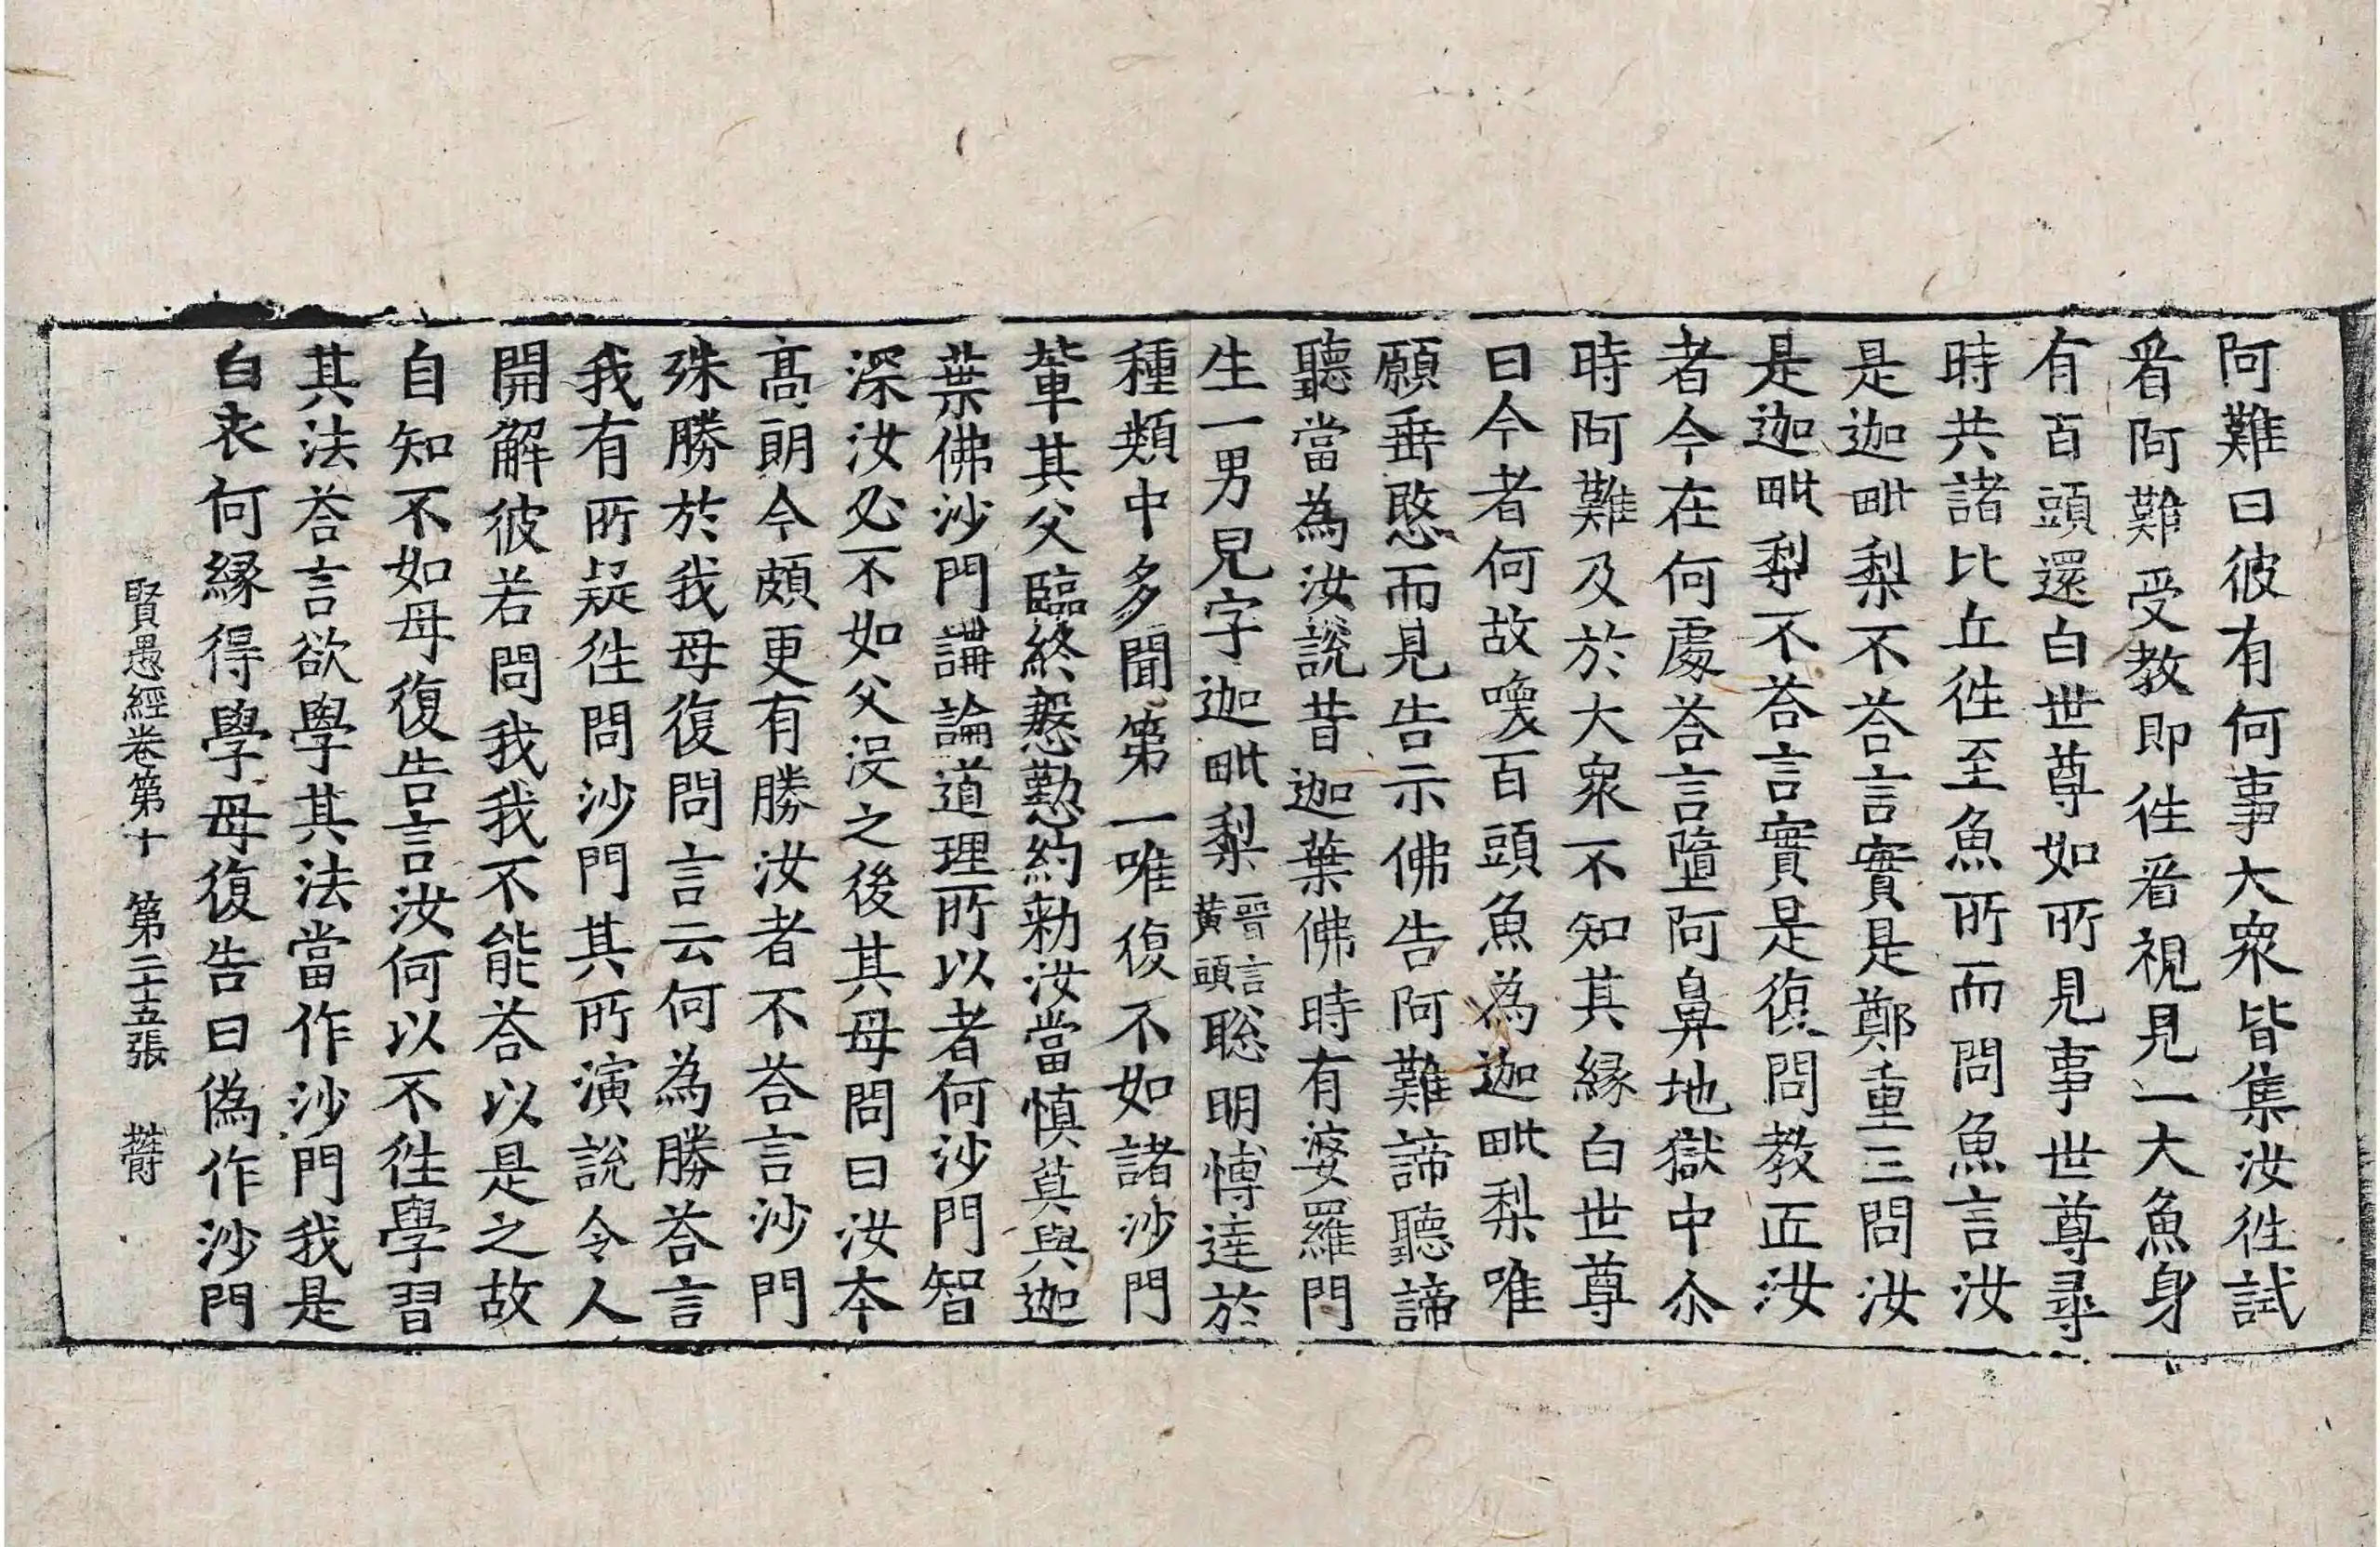 阿難曰彼有何事大衆皆集汝徃試
㸔阿難受教即徃㸔視見一大魚身
有百頭還白世尊如所見事世尊尋
時共諸比丘徃至魚所而問魚言汝
是迦毗梨不荅言實是鄭重三問汝
是迦毗梨不荅言實是復問教匠汝
者今在何處荅言墮阿鼻地獄中尒
時阿難及於大衆不知其縁白世尊
曰今者何故喚百頭魚為迦毗梨唯
願垂愍而見告示佛告阿難諦聽諦
聽當為汝說昔迦葉佛時有婆羅門
生一男兒字迦毗梨晉言黃頭聡明博達於
種類中多聞第一唯復不如諸沙門
輩其父臨終慇懃約勑汝當慎莫與迦
葉佛沙門講論道理所以者何沙門智
深汝必不如父没之後其母問曰汝本
髙朗今頗更有勝汝者不荅言沙門
殊勝於我母復問言云何為勝荅言
我有所疑徃問沙門其所演說令人
開解彼若問我我不能荅以是之故
自知不如母復告言汝何以不徃學習
其法荅言欲學其法當作沙門我是
白衣何縁得學母復告曰偽作沙門
賢愚經卷第十 第二十五張